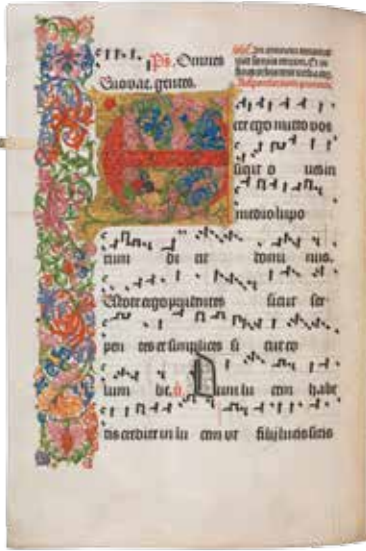 Ps. Omnes
Euovae. gentes.
cce ego mitto vos
sicut o ues in
medio lupo
rum di cit domi nus.
Estote ergo prudentes sicut ser
pen tes et simplices si cut co
lum be. Dum lu cem habe
tis credite in lu cem ut filij lucis sitis